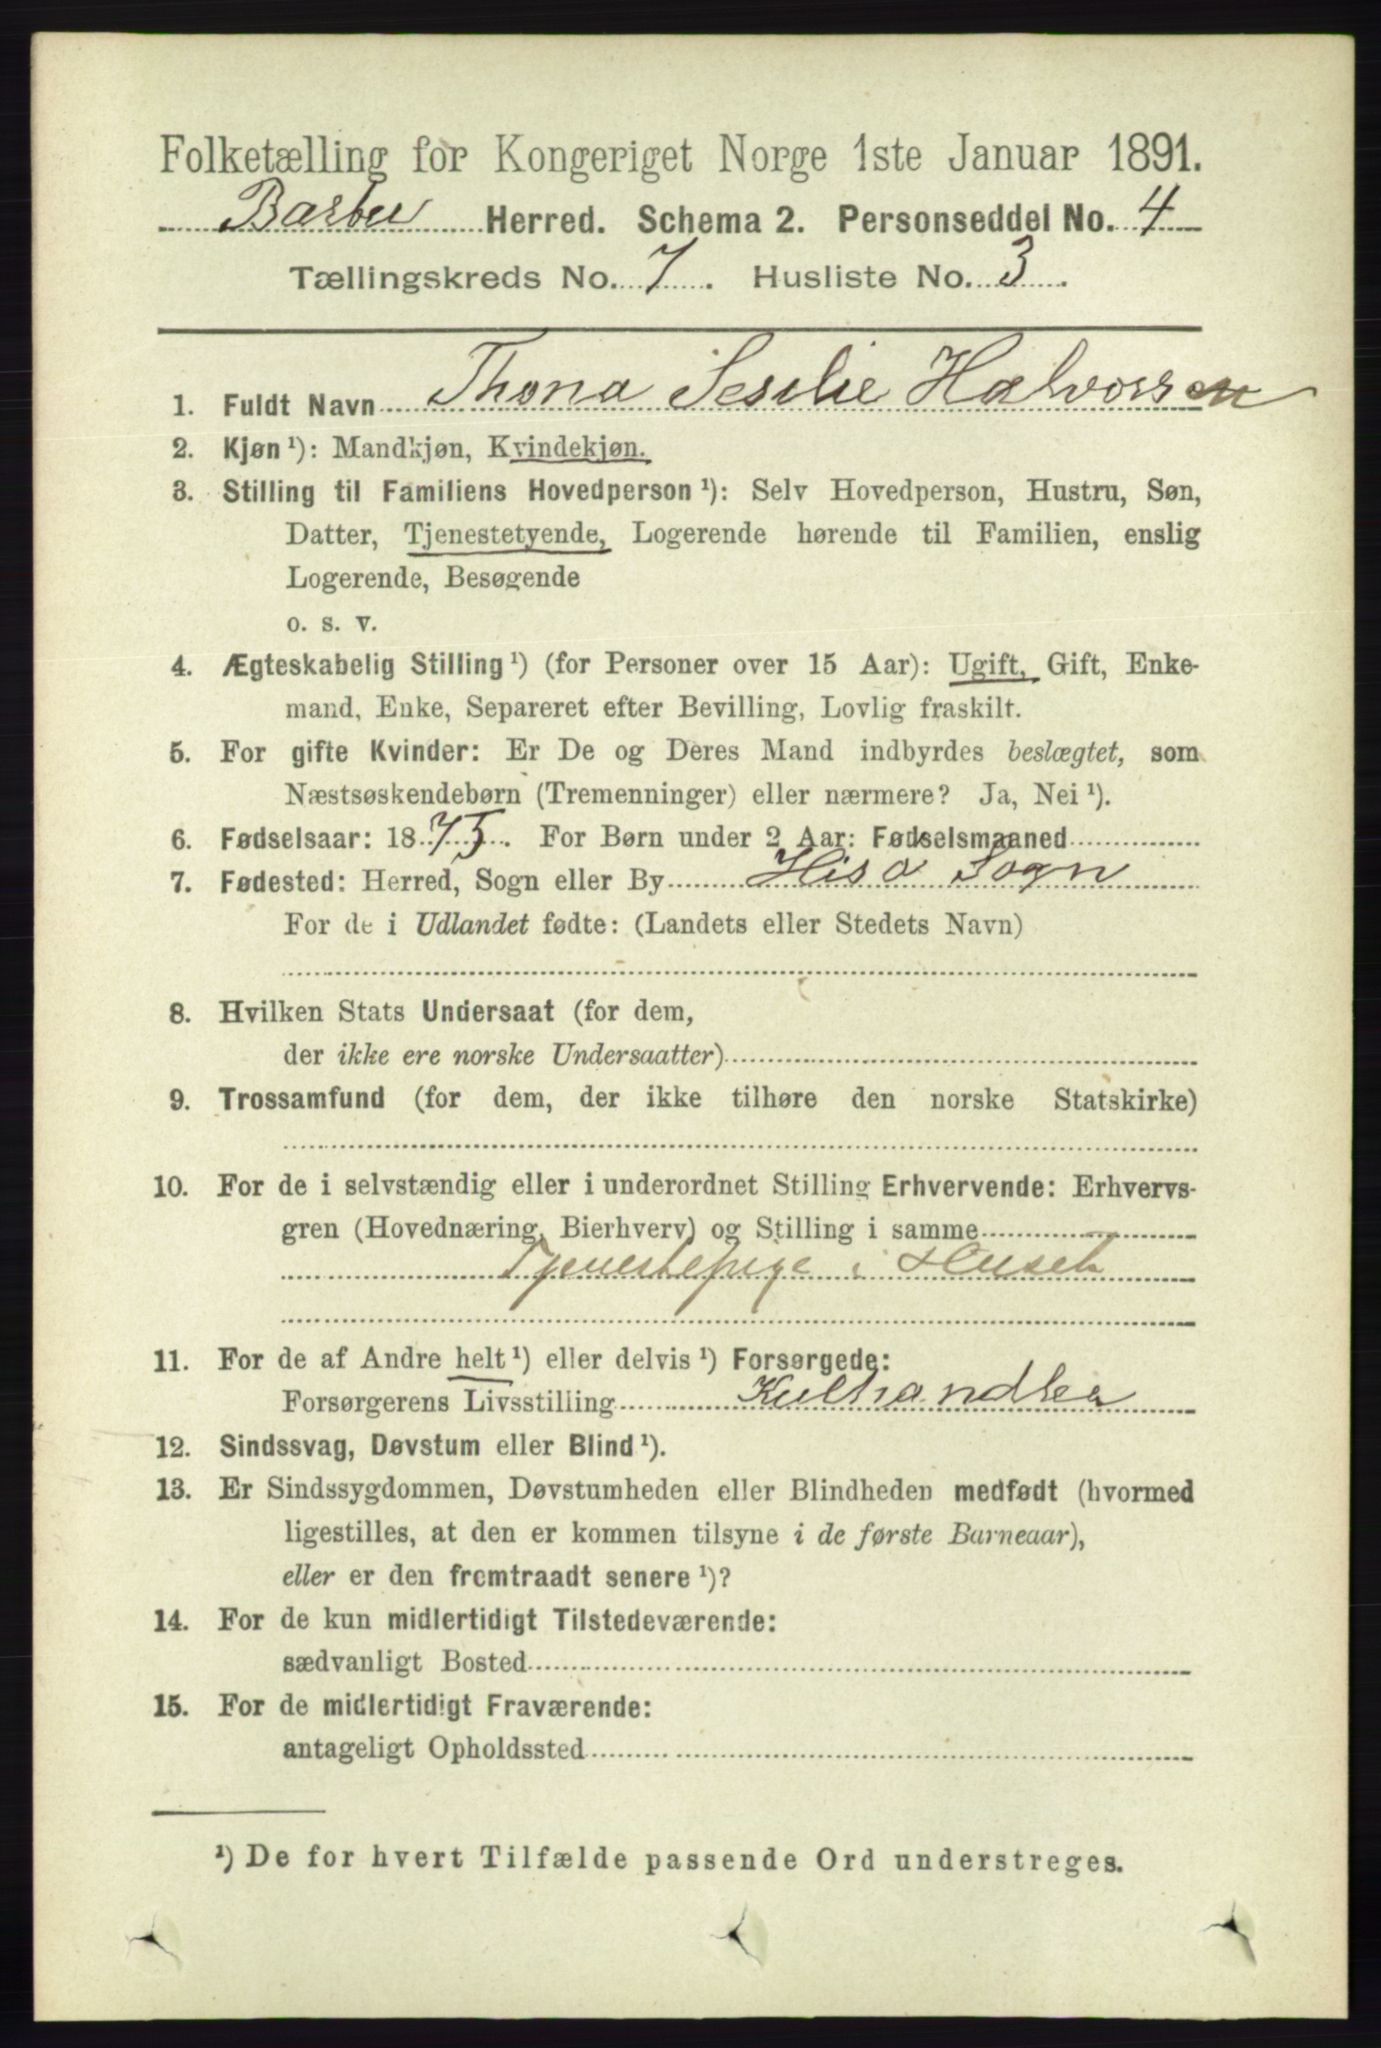 Folketælling for Kongeriget Norge 1ste Januar 1891.
Barbu Herred. Schema 2. Personseddel No. 4
Tællingskreds No. 7. Husliste No. 3.
1. Fuldt Navn Thona Seselie Halvorsen
2. Kjøn ¹): Mandkjøn, Kvindekjøn.
3. Stilling til Familiens Hovedperson ¹): Selv Hovedperson, Hustru, Søn,
Datter, Tjenestetyende, Logerende hørende til Familien, enslig
Logerende, Besøgende
o. s. v.
4. Ægteskabelig Stilling ¹) (for Personer over 15 Aar): Ugift, Gift, Enke-
mand, Enke, Separeret efter Bevilling, Lovlig fraskilt.
5. For gifte Kvinder: Er De og Deres Mand indbyrdes beslægtet, som
Næstsøskendebørn (Tremenninger) eller nærmere? Ja, Nei ¹).
6. Fødselsaar: 1875. For Børn under 2 Aar: Fødselsmaaned
7. Fødested: Herred, Sogn eller By Hisø Sogn
For de i Udlandet fødte: (Landets eller Stedets Navn)
8. Hvilken Stats Undersaat (for dem,
der ikke ere norske Undersaatter)
9. Trossamfund (for dem, der ikke tilhøre den norske Statskirke)
10. For de i selvstændig eller i underordnet Stilling Erhvervende: Erhvervs-
gren (Hovednæring, Bierhverv) og Stilling i samme
Tjenestepige i Huset
11. For de af Andre helt ¹) eller delvis ¹) Forsørgede:
Forsørgerens Livsstilling Kulhandler
12. Sindssvag, Døvstum eller Blind ¹).
13. Er Sindssygdommen, Døvstumheden eller Blindheden medfødt (hvormed
ligestilles, at den er kommen tilsyne i de første Barneaar),
eller er den fremtraadt senere ¹)?
14. For de kun midlertidigt Tilstedeværende:
sædvanligt Bosted
15. For de midlertidigt Fraværende:
antageligt Opholdssted
¹) De for hvert Tilfælde passende Ord understreges.